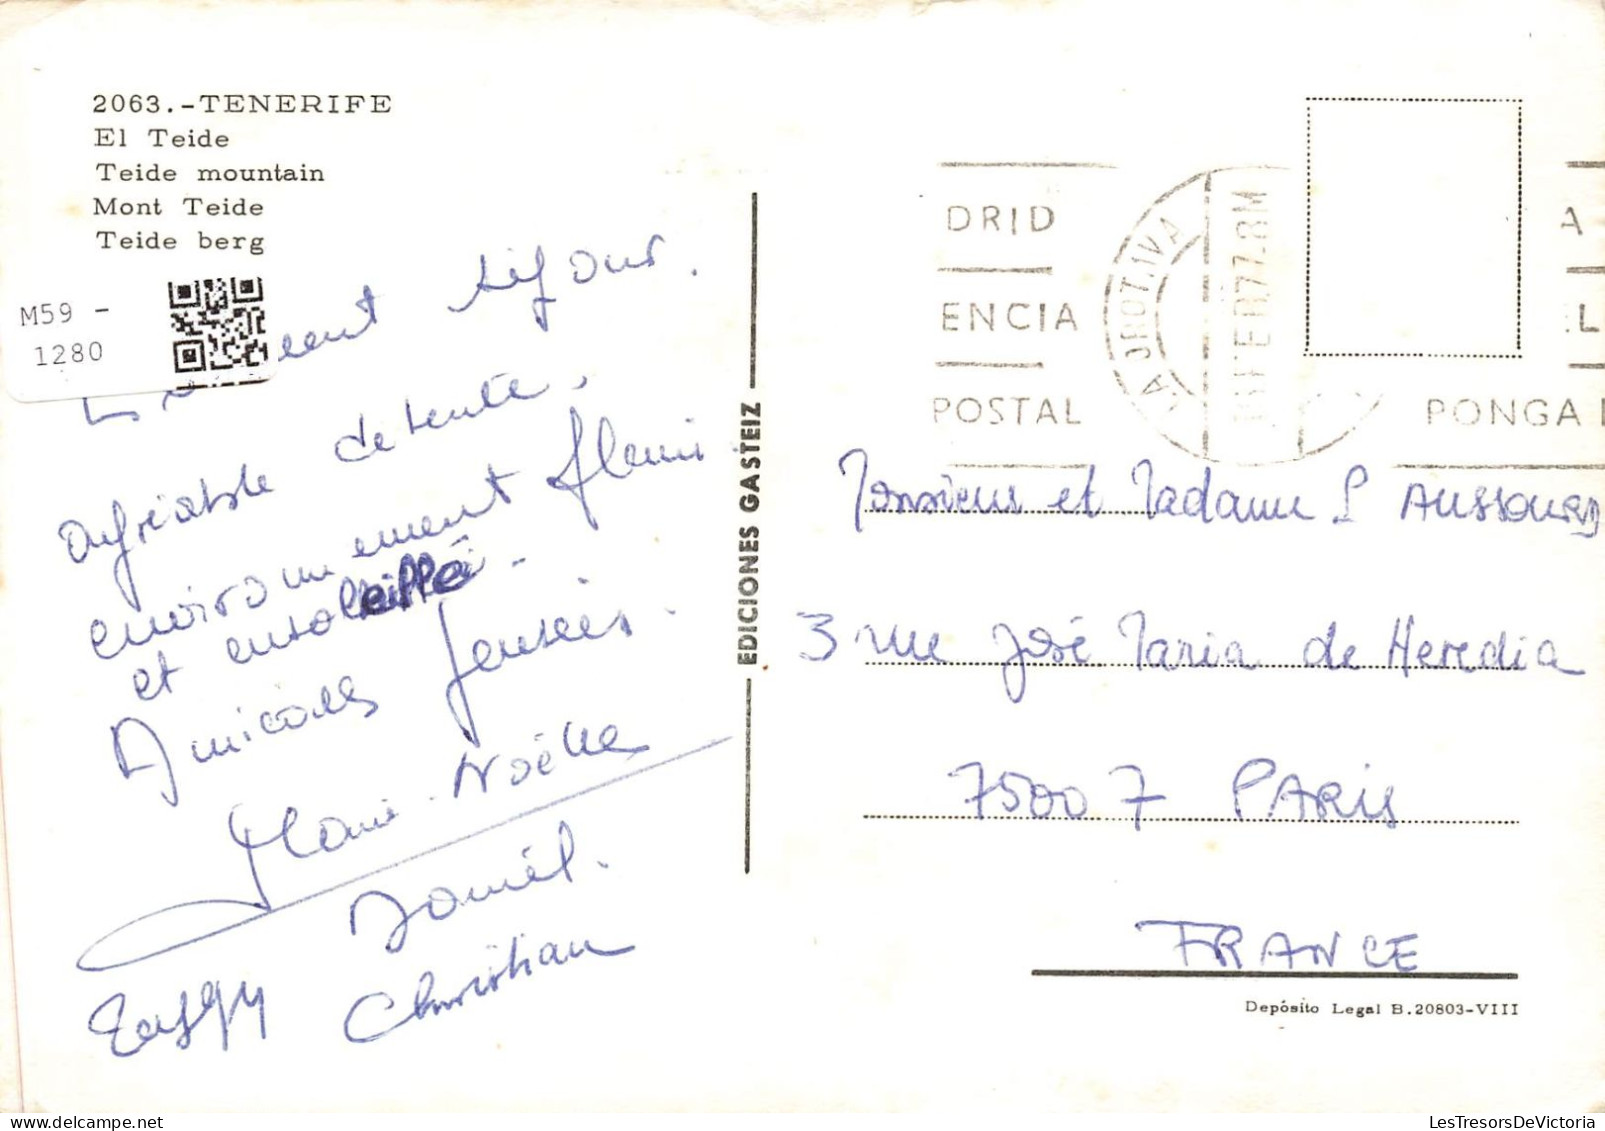 2063.-TENERIFE
El Teide
Teide mountain
Mont Teide
Teide berg
M59 -
1280
séjour.
agréable détente.
environnement fleuri
et ensoleillé.
Amicales pensées.
Marie-Noëlle
Daniel.
Christian
EDICIONES GASTEIZ
DRID
ENCIA
POSTAL
LA OROTAVA
FEB 77. 8M
A
EL
PONGA
Monsieur et Madame L AUSSOURD
3 rue José Maria de Heredia
75007 PARIS
FRANCE
Depósito Legal B.20803-VIII
LesTresorsDeVictoria.com